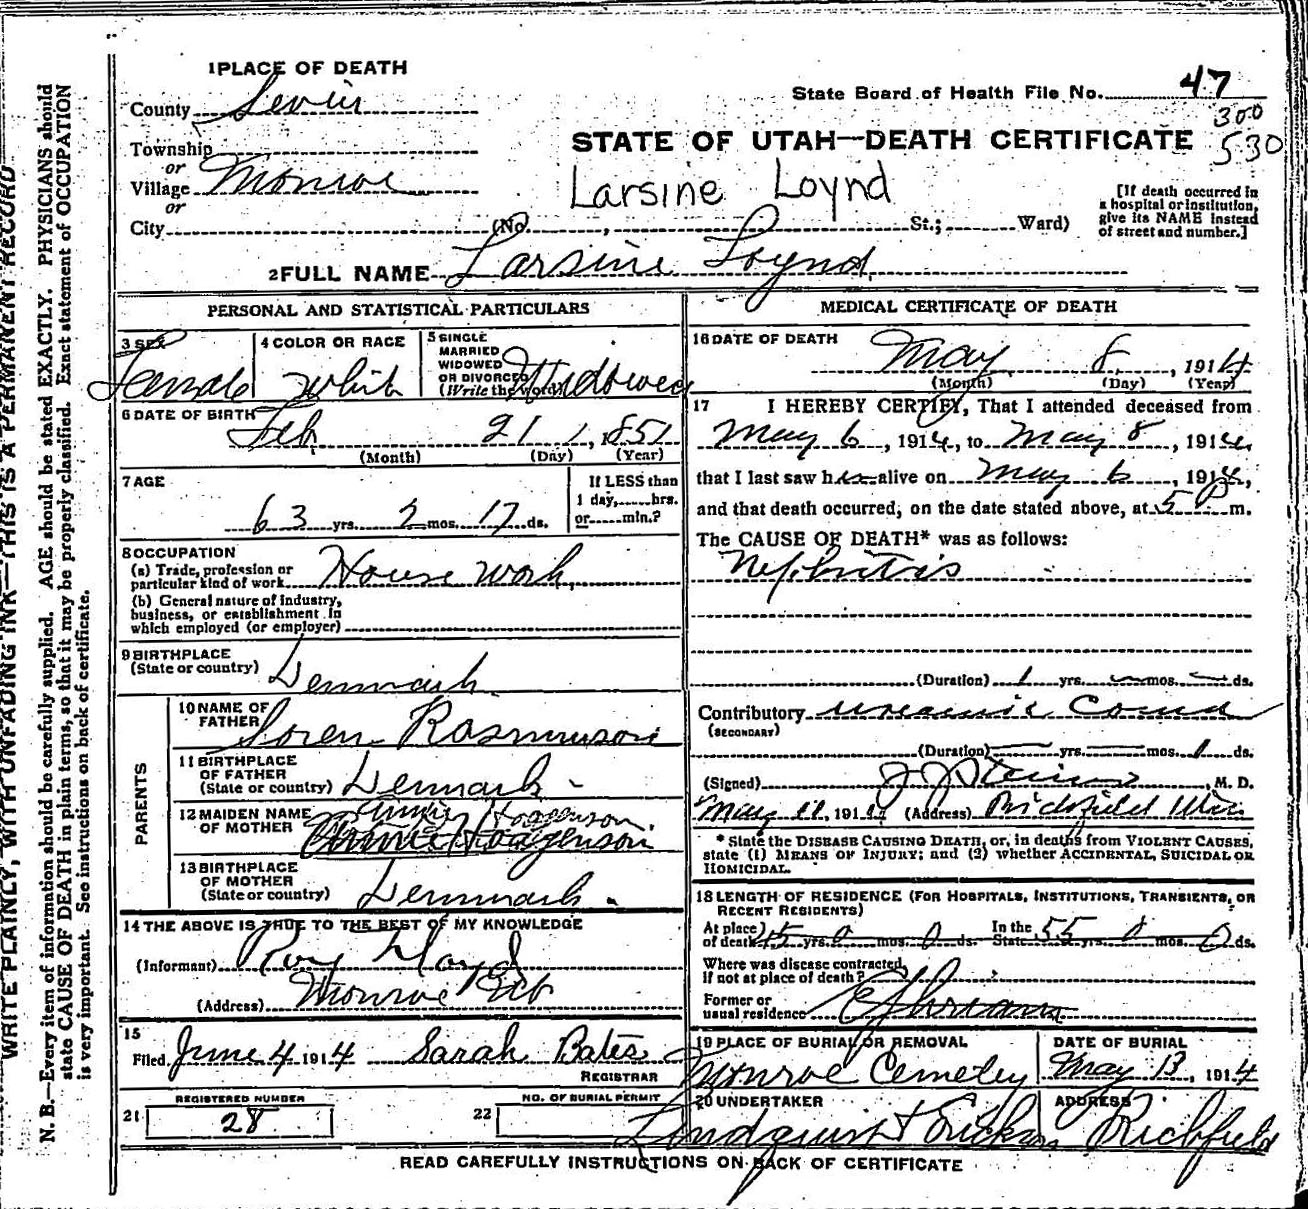 47
300
530
State Board of Health File No.
STATE OF UTAH—DEATH CERTIFICATE
Larsine Loynd
[If death occurred in
a hospital or institution,
give its NAME instead
of street and number.]
1 PLACE OF DEATH
County Sevier
Township
or
Village Monroe
or
City (No. , St.; Ward)
2 FULL NAME Larsine Loynd
PERSONAL AND STATISTICAL PARTICULARS
3 SEX Female
4 COLOR OR RACE White
5 SINGLE
MARRIED
WIDOWED
OR DIVORCED
(Write the word) Widowed
6 DATE OF BIRTH
Feb 21, 1851
(Month) (Day) (Year)
7 AGE
63 yrs. 2 mos. 17 ds.
If LESS than
1 day, hrs.
or min.?
8 OCCUPATION
(a) Trade, profession or
particular kind of work House work
(b) General nature of industry,
business, or establishment in
which employed (or employer)
9 BIRTHPLACE
(State or country) Denmark
PARENTS
10 NAME OF
FATHER Soren Rasmusson
11 BIRTHPLACE
OF FATHER
(State or country) Denmark
12 MAIDEN NAME
OF MOTHER
Hogenson
13 BIRTHPLACE
OF MOTHER
(State or country) Denmark
14 THE ABOVE IS TRUE TO THE BEST OF MY KNOWLEDGE
(Informant) Roy Loynd
(Address) Monroe
15
Filed June 4 1914 Sarah Bates
REGISTRAR
21 REGISTERED NUMBER
28
22 NO. OF BURIAL PERMIT
MEDICAL CERTIFICATE OF DEATH
16 DATE OF DEATH
May 8, 1914
(Month) (Day) (Year)
17 I HEREBY CERTIFY, That I attended deceased from
May 6, 1914, to May 8, 1914
that I last saw her alive on May 6, 1914,
and that death occurred, on the date stated above, at 5 P m.
The CAUSE OF DEATH* was as follows:
Nephritis
(Duration) 1 yrs. — mos. — ds.
Contributory Uraemic Coma
(SECONDARY)
(Duration) — yrs. — mos. 1 ds.
(Signed) J J Steiner, M. D.
May 11, 1914 (Address) Richfield
* State the DISEASE CAUSING DEATH, or, in deaths from VIOLENT CAUSES,
state (1) MEANS OF INJURY; and (2) whether ACCIDENTAL, SUICIDAL OR
HOMICIDAL.
18 LENGTH OF RESIDENCE (FOR HOSPITALS, INSTITUTIONS, TRANSIENTS, OR
RECENT RESIDENTS)
At place
of death 45 yrs. 0 mos. 0 ds. In the
State 55 yrs. 0 mos. 0 ds.
Where was disease contracted,
if not at place of death?
Former or
usual residence Ephraim
19 PLACE OF BURIAL OR REMOVAL
Monroe Cemetery
DATE OF BURIAL
May 13, 1914
20 UNDERTAKER
Lindquist & Erickson
ADDRESS
Richfield
READ CAREFULLY INSTRUCTIONS ON BACK OF CERTIFICATE
WRITE PLAINLY, WITH UNFADING INK—THIS IS A PERMANENT RECORD
N. B.—Every item of information should be carefully supplied. AGE should be stated EXACTLY. PHYSICIANS should
state CAUSE OF DEATH in plain terms, so that it may be properly classified. Exact statement of OCCUPATION
is very important. See instructions on back of certificate.